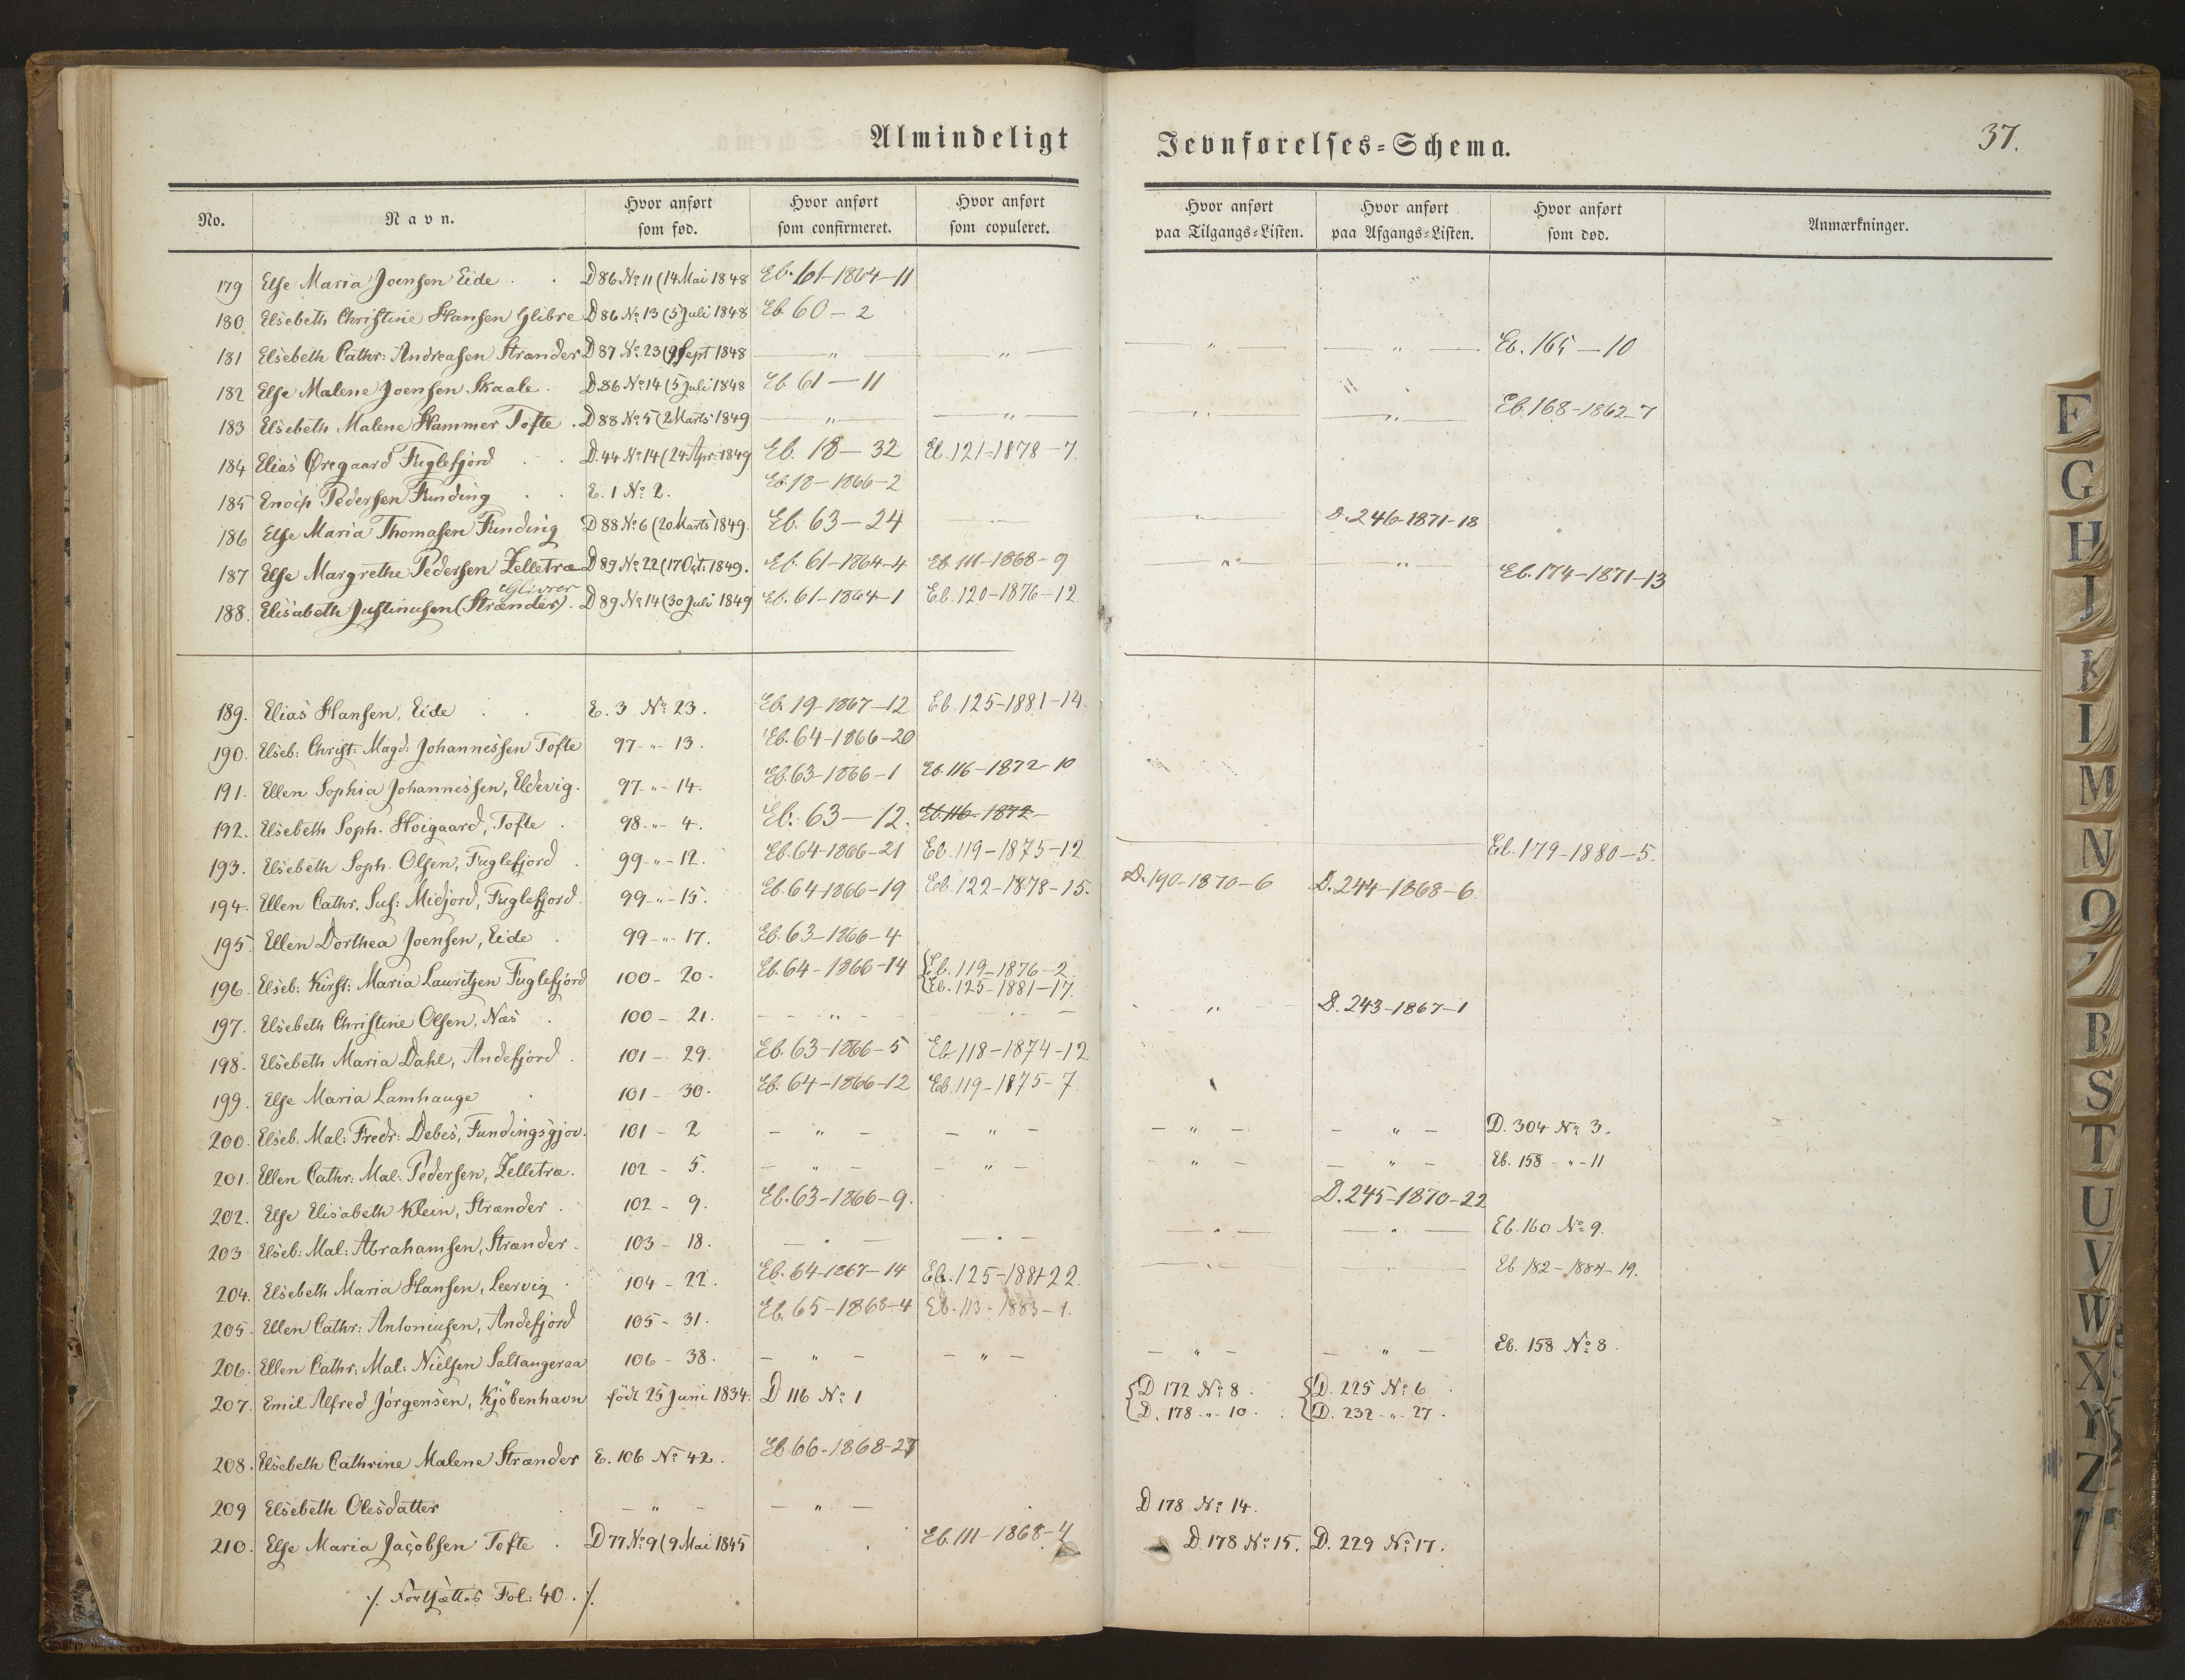 Almindeligt Jevnførelses=Schema. 37.
No. Navn. Hvor anført som fød. Hvor anført som confirmeret. Hvor anført som copuleret. Hvor anført paa Tilgangs=Listen. Hvor anført paa Afgangs=Listen. Hvor anført som død. Anmærkninger.
179 Else Maria Joensen Eide . . D 86 No 11 (14 Mai 1848 Eb. 61-1864-11
180 Elsebeth Christine Hansen Glibre D 86 No 13 (5 Juli 1848 Eb. 60 - 2
181 Elsebeth Cathr: Andreasen Strænder D 87 No 23 (9 Sept 1848 — " — — " — — " — — " — Eb. 165 - 10
182 Else Malene Joensen Skaale . D. 86 No 14 (5 Juli 1848 Eb. 61 - 11
183 Elsebeth Malene Hammer Tofte . D 88 No 5 (2 Marts 1849 — " — — " — — " — — " — Eb. 168-1862-7
184 Elias Øregaard Fuglefjord D. 44 No 14 (24 Apr: 1849 Eb. 18 - 32 Eb. 121-1878-7.
185 Enoch Pedersen Funding E. 1 No 2. Eb. 18-1866-2
186 Else Maria Thomasen Funding D 88 No 6 (20 Marts 1849. Eb. 63 - 24 D. 246-1871-18
187 Else Margrethe Pedersen Zelletræ D 89 No 22 (17 Oct. 1849. Eb. 61-1864-4 Eb. 111-1868-9 — " — — " — Eb. 174-1871-13
Glivrer
188. Elisabeth Justinusen (Strænder). D 89 No 14 (30 Juli 1849 Eb. 61-1864-1 Eb. 120-1876-12
189. Elias Hansen, Eide . . E. 3 No 23. Eb. 19-1867-12 Eb. 125-1881-14.
190. Elseb: Christ: Magd: Johannessen Tofte 97 - " - 13. Eb. 64-1866-20
191. Ellen Sophia Johannessen, Eldevig. 97 - " - 14. Eb. 63-1866-1 Eb. 116-1872-10
192. Elsebeth Soph. Høigaard, Tofte . 98 - " - 4. Eb. 63 - 12. Eb. 116-1872-
193. Elsebeth Soph. Olsen, Fuglefjord . 99 - " - 12. Eb. 64-1866-21 Eb. 119-1875-12 Eb. 179-1880-5.
194. Ellen Cathr. Sus: Midjord, Fuglefjord. 99 - " - 15. Eb. 64-1866-19 Eb. 122-1878-15. D. 190-1870-6 D. 244-1868-6
195 Ellen Dorthea Joensen, Eide . 99 - " - 17. Eb. 63-1866-4
196. Elseb: Kirst: Maria Lauritzen Fuglefjord 100 - 20. Eb. 64-1866-14 {Eb. 119-1876-2.
{Eb. 125-1881-17.
197. Elsebeth Christine Olsen, Næs . 100 - 21. — " — — " — " D. 243-1867-1
198. Elsebeth Maria Dahl, Andefjord . 101 - 29. Eb. 63-1866-5 Eb. 118-1874-12
199. Else Maria Lamhauge . 101 - 30. Eb. 64-1866-12 Eb. 119-1875-7.
200. Elseb. Mal: Fredr: Debes, Fundingsgjov. 101 - 2 — " — — " — — " — — " — D. 304 No 3.
201. Ellen Cathr: Mal: Pedersen, Zelletræ. 102 - 5. — " — — " — — " — — " — Eb. 158 - " - 11
202. Else Elisabeth Klein, Strænder . 102 - 9. Eb. 63-1866-9. D. 245-1870-22
203 Elseb: Mal: Abrahamsen, Strænder. 103 - 18. — " — — " — — " — — " — Eb. 160 No 9.
204. Elsebeth Maria Hansen, Leervig . 104 - 22. Eb. 64-1867-14 Eb. 125-1881-22. Eb. 182-1884-19.
205. Ellen Cathr: Antoniusen, Andefjord 105 - 31. Eb. 65-1868-4 Eb. 113-1883-1.
206. Ellen Cathr: Mal: Nielsen Saltangeraa 106 - 38. — " — — " — — " — — " — Eb. 158 No 8.
207. Emil Alfred Jørgensen, Kjøbenhavn født 25 Juni 1834. D 116 No 1 {D 172 No 8. {D. 225 No 6
{D. 178 - " - 10. {D. 232 - " - 27.
208. Elsebeth Cathrine Malene Strænder E. 106 No 42. Eb. 66-1868-27
209 Elsebeth Olesdatter — " — — " — D 178 No 14.
210. Else Maria Jacobsen Tofte . D 77 No 9 (9 Mai 1845 Eb. 111-1868-4 D 178 No 15. D. 229 No 17.
./. Fortsættes Fol: 40. ./.
F
G
H
J
K
L
M
N
O
R
S
T
U
V
W
X
Y
Z